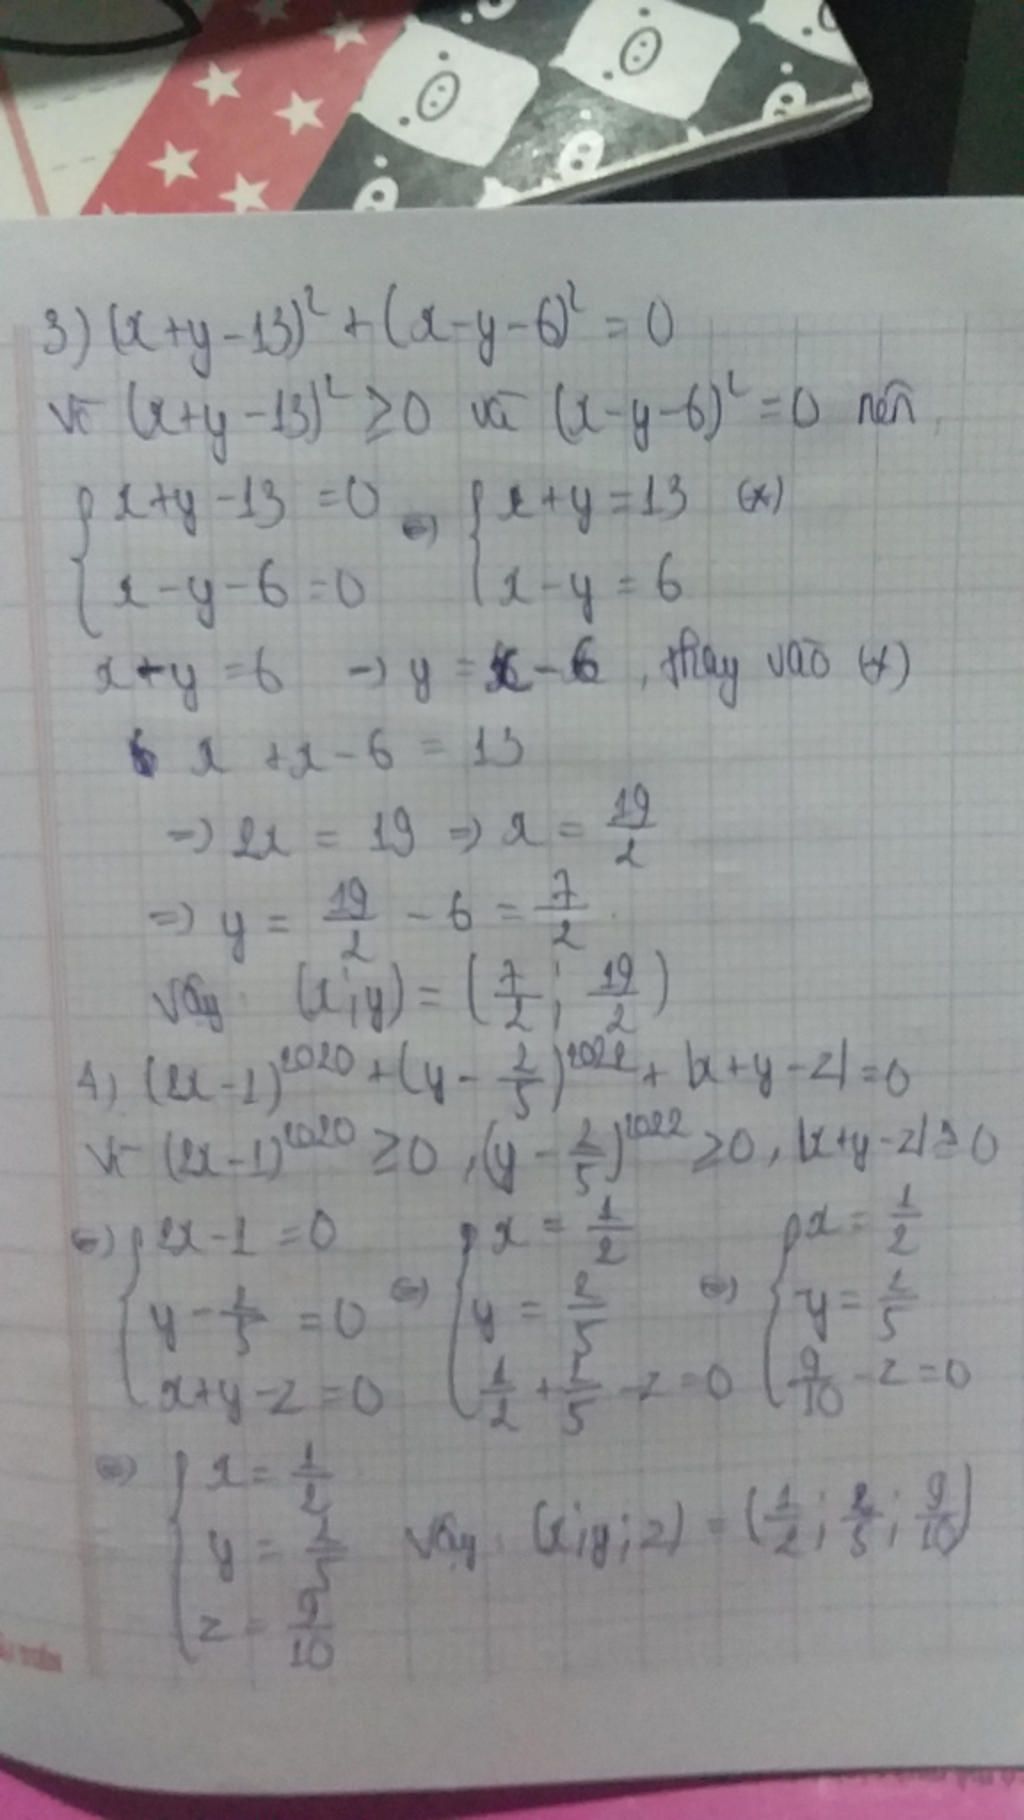 3) (x+y-13)² + (x-y-6)² = 0
Vì (x+y-13)² ≥0 và (x-y-6)² =0 nên
{ x+y-13 =0 ⇔ { x+y=13 (*)
{ x-y-6=0 { x-y=6
x-y=6 → y = x-6, thay vào (*)
x +x-6 = 13
=> 2x = 19 => x = 19/2
=> y = 19/2 - 6 = 7/2
Vậy (x;y) = (7/2; 19/2)
4) (2x-1)²⁰²⁰ + (y - 2/5)²⁰²² + |x+y-z| =0
Vì (2x-1)²⁰²⁰ ≥0, (y - 2/5)²⁰²² ≥0, |x+y-z| ≥0
⇔ { 2x-1 =0 { x = 1/2 { x = 1/2
{ y - 2/5 =0 ⇔ { y = 2/5 ⇔ { y = 2/5
{ x+y-z=0 { 1/2 + 2/5 - z =0 { 9/10 - z =0
⇔ { x = 1/2
{ y = 2/5 Vậy (x;y;z) = (1/2; 2/5; 9/10)
{ z = 9/10